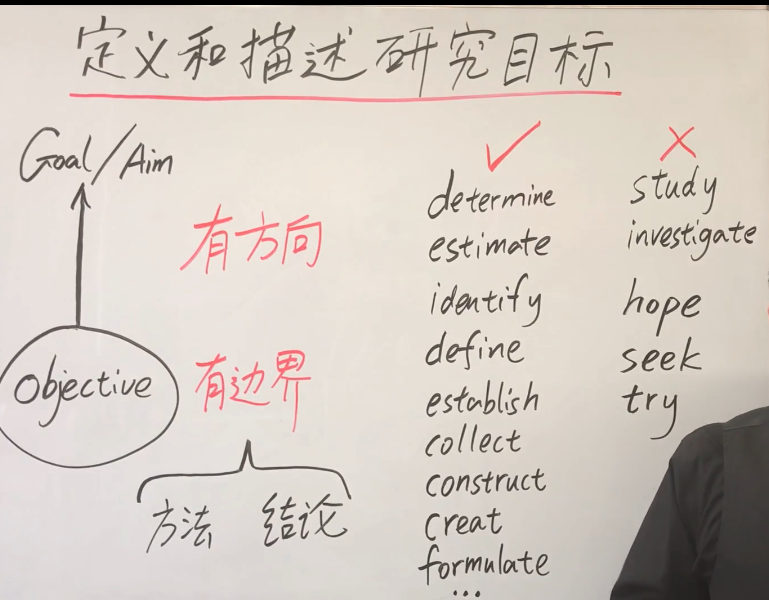 定义和描述研究目标
Goal/Aim
有方向
objective
有边界
方法 结论
✓
determine
estimate
identify
define
establish
collect
construct
creat
formulate
...
×
study
investigate
hope
seek
try